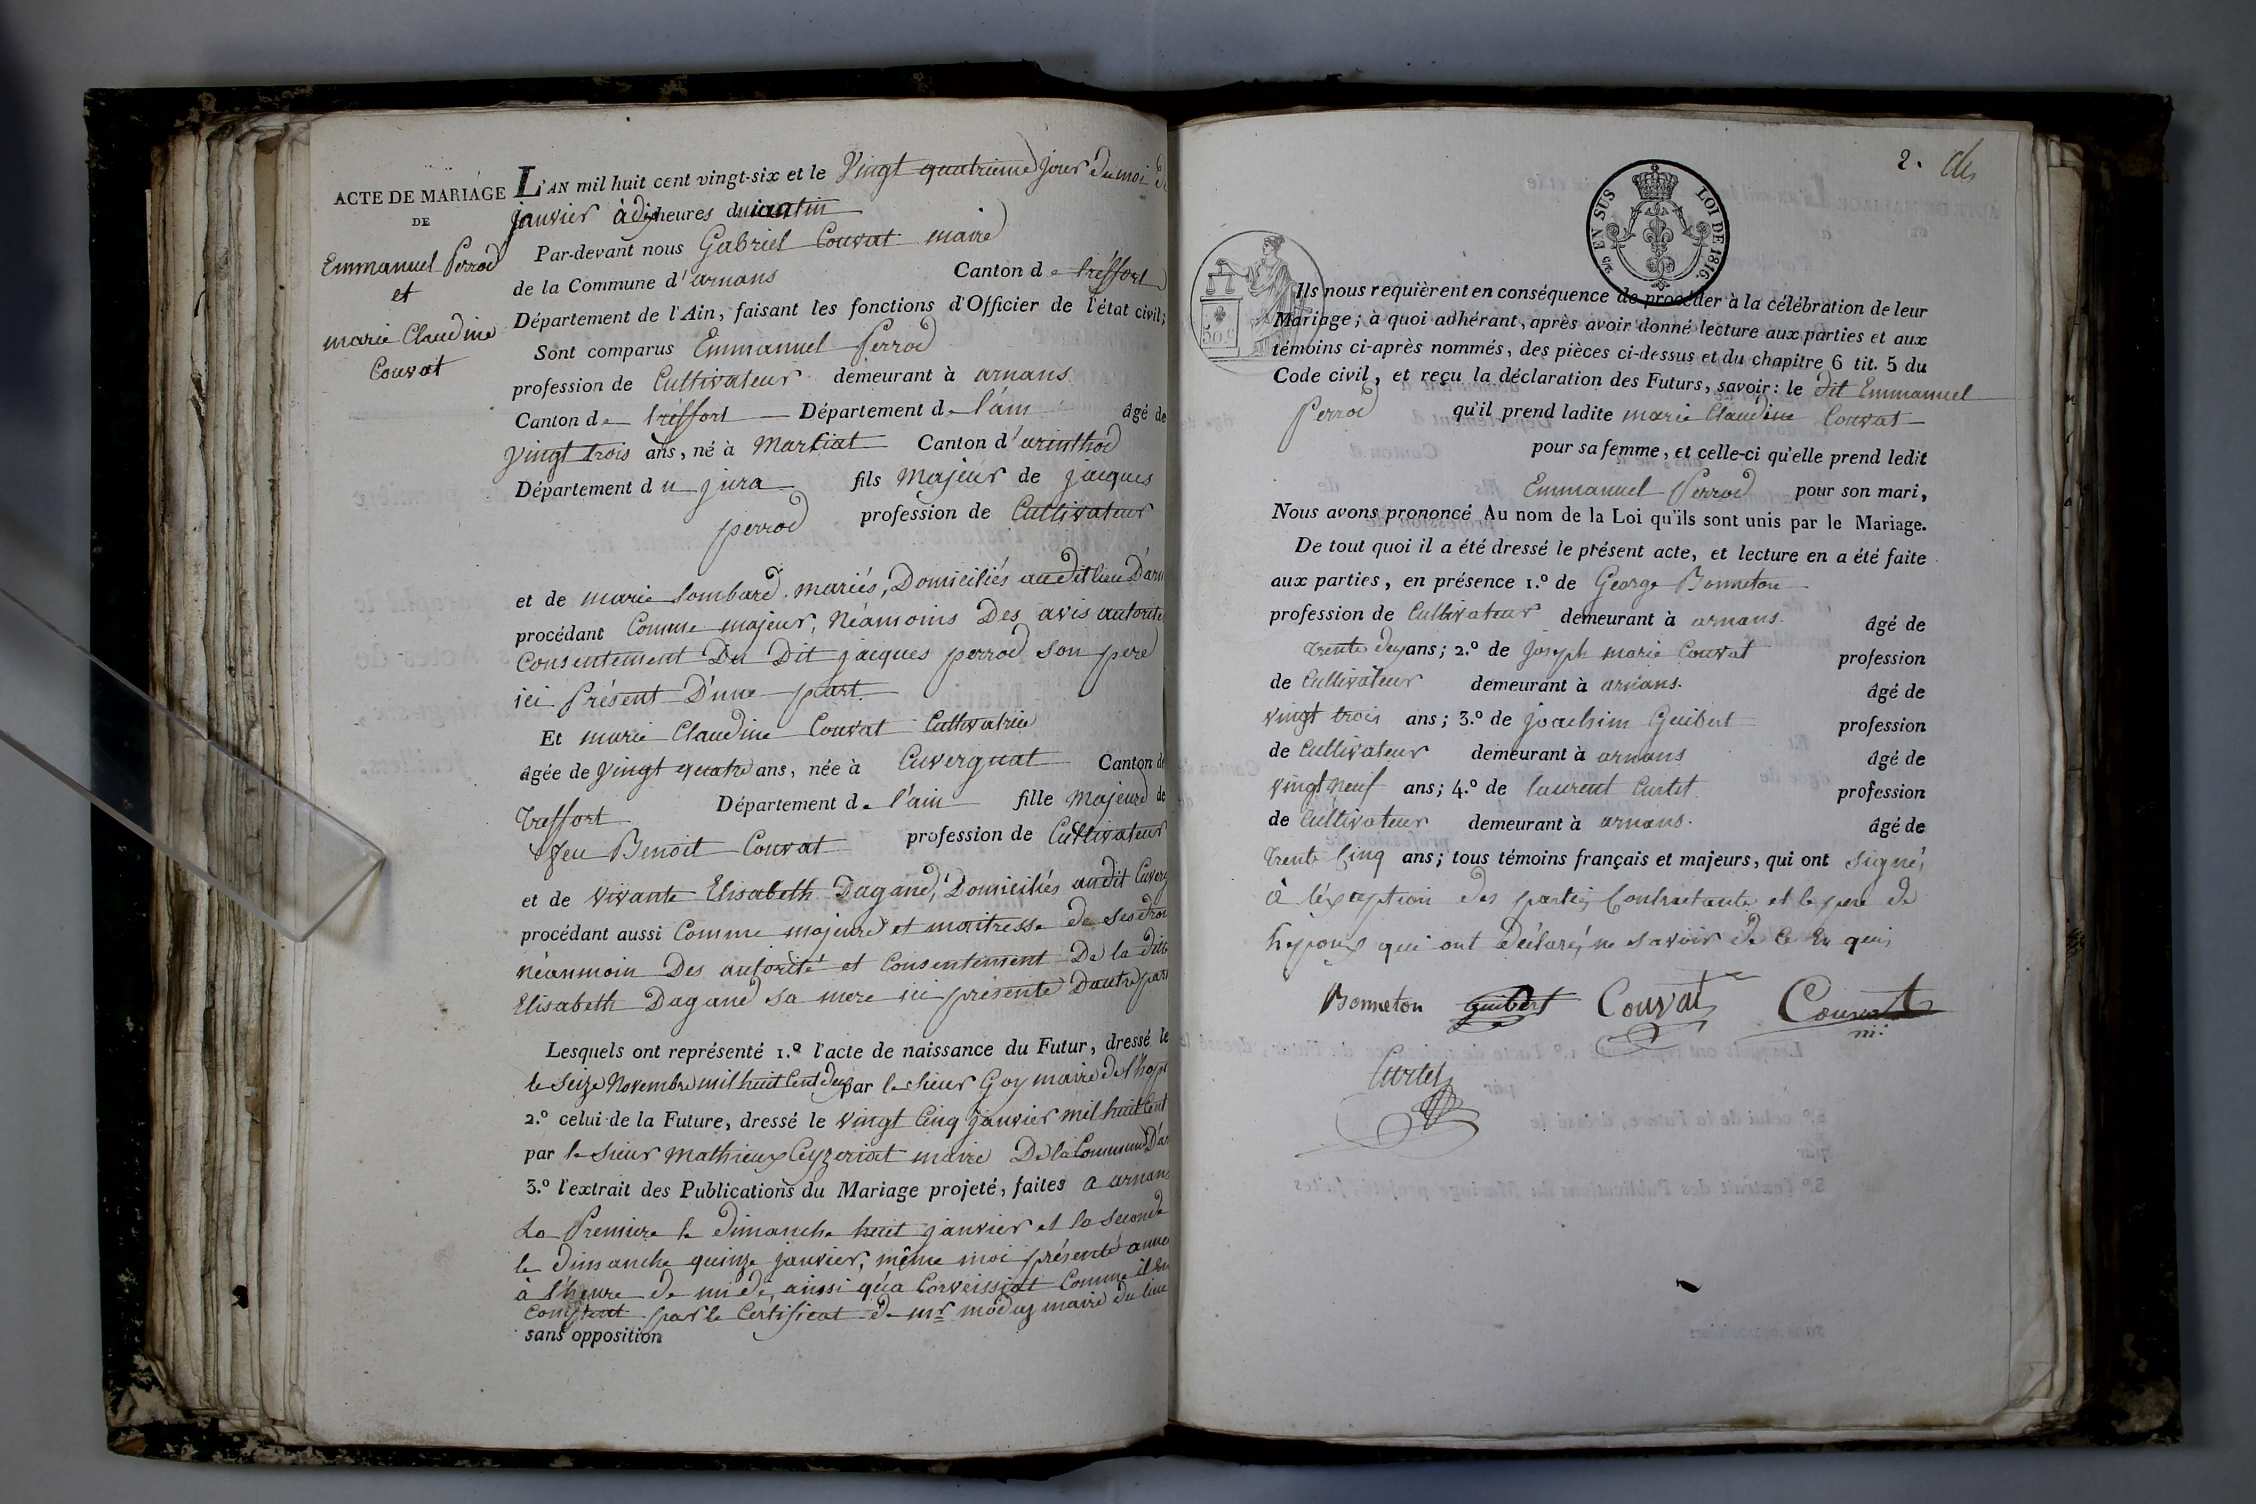 ACTE DE MARIAGE
DE
Emmanuel Perrod
et
marie Claudine
Couvat
L'AN mil huit cent vingt-six et le Vingt quatrieme jour du moi de
janvier à dix heures du matin
Par-devant nous Gabriel Couvat maire
de la Commune d'arnans Canton de tréffort
Département de l'Ain, faisant les fonctions d'Officier de l'état civil;
Sont comparus Emmanuel Perrod
profession de Cultivateur demeurant à arnans
Canton de tréffort Département de l'ain âgé de
Vingt trois ans, né à Martiat Canton d'arinthod
Département du jura fils Majeur de jacques
perrod profession de Cultivateur
et de marie Lombard, mariés, Domiciliés audit lieu D'arn
procédant Comme majeur, Néamoins Des avis autorité
Consentement Du Dit jacques perrod son pere
ici Présent D'une part.
Et marie Claudine Couvat Cultivatrice
âgée de Vingt quatre ans, née à Cuvergnat Canton de
Treffort Département de l'ain fille Majeure de
feu Benoit Couvat profession de Cultivateur
et de vivante Elisabeth Dagand, Domiciliés audit Cuverg
procédant aussi Comme majeure et maitresse de ses droi
néanmoin Des autorité et Consentement De la dite
Elisabeth Dagand sa mere ici présente D'autre part
Lesquels ont représenté 1.º l'acte de naissance du Futur, dressé le
le Seize Novembre mil huit Cent deux par le sieur Goy maire de l'hopi
2.º celui de la Future, dressé le vingt Cinq janvier mil huit Cent
par le sieur Mathieux Ceyzeriat maire De la Commune D'ar
3.º l'extrait des Publications du Mariage projeté, faites a arnans
La Premiere le dimanche huit janvier et la seconde
le Dimanche quinze janvier, même moi présente anne
à l'heure de midi, ainsi qu'a Corveissiat Comme il en
Constat par le Certificat de mr moduz maire du lieu
sans opposition
2.
5/c EN SUS LOI DE 1816.
50c
Ils nous requièrent en conséquence de procéder à la célébration de leur
Mariage; à quoi adhérant, après avoir donné lecture aux parties et aux
témoins ci-après nommés, des pièces ci-dessus et du chapitre 6 tit. 5 du
Code civil, et reçu la déclaration des Futurs, savoir: le dit Emmanuel
Perrod qu'il prend ladite marie Claudine Couvat
pour sa femme, et celle-ci qu'elle prend ledit
Emmanuel Perrod pour son mari,
Nous avons prononcé Au nom de la Loi qu'ils sont unis par le Mariage.
De tout quoi il a été dressé le présent acte, et lecture en a été faite
aux parties, en présence 1.º de George Bonneton
profession de Cultivateur demeurant à arnans. âgé de
trente deux ans; 2.º de joseph marie Couvat profession
de Cultivateur demeurant à arnans. âgé de
vingt trois ans; 3.º de joachim Guibert profession
de Cultivateur demeurant à arnans âgé de
vingt neuf ans; 4.º de laurent Curtet profession
de Cultivateur demeurant à arnans. âgé de
trente Cinq ans; tous témoins français et majeurs, qui ont signé,
à l'exception des parties Contractante et le pere de
l'epoux qui ont déclaré, ne savoir de ce En quis
Bonneton guibert Couvat Couvat
m:
Curtet